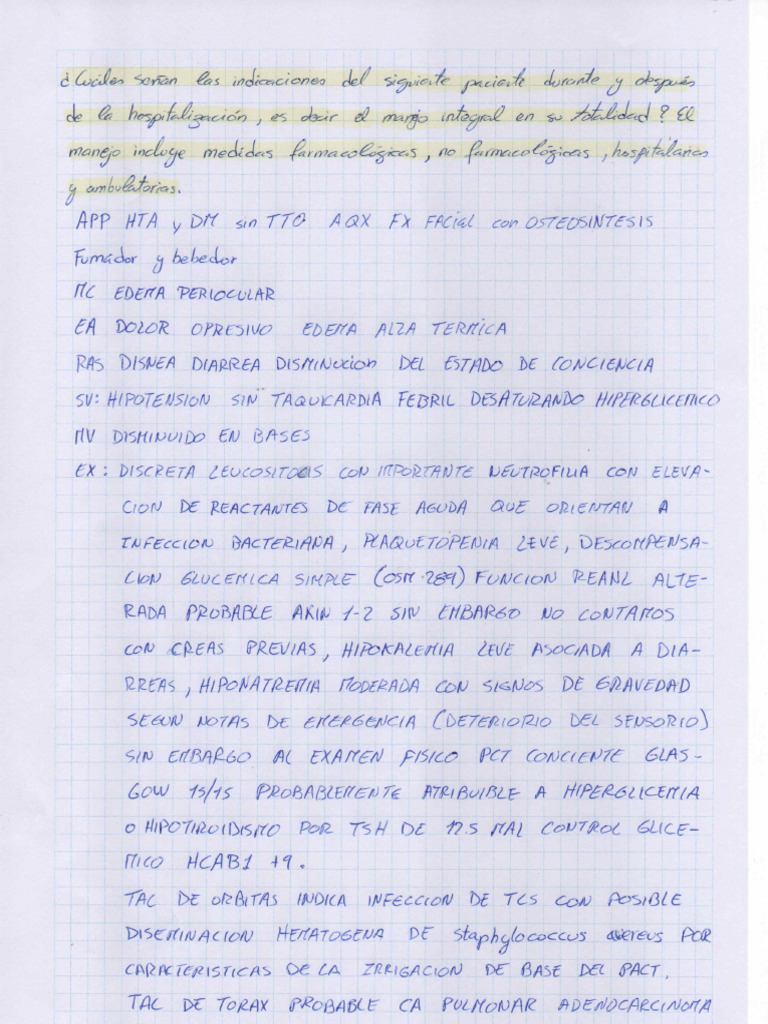 ¿Cuáles serían las indicaciones del siguiente paciente durante y después
de la hospitalización, es decir el manejo integral en su totalidad? El
manejo incluye medidas farmacológicas, no farmacológicas, hospitalarias
y ambulatorias.
APP HTA y DM sin TTO AQX FX FACIAL con OSTEOSINTESIS
Fumador y bebedor
MC EDEMA PERIOCULAR
EA DOLOR OPRESIVO EDEMA ALZA TERMICA
RAS DISNEA DIARREA DISMINUCION DEL ESTADO DE CONCIENCIA
SV: HIPOTENSION SIN TAQUICARDIA FEBRIL DESATURANDO HIPERGLICEMICO
MV DISMINUIDO EN BASES
EX: DISCRETA LEUCOSITOSIS CON IMPORTANTE NEUTROFILIA CON ELEVA-
CION DE REACTANTES DE FASE AGUDA QUE ORIENTAN A
INFECCION BACTERIANA, PLAQUETOPENIA LEVE, DESCOMPENSA-
CION GLUCEMICA SIMPLE (OSM 289) FUNCION REANL ALTE-
RADA PROBABLE AKIN 1-2 SIN EMBARGO NO CONTAMOS
CON CREAS PREVIAS, HIPOKALEMIA LEVE ASOCIADA A DIA-
RREAS, HIPONATREMIA MODERADA CON SIGNOS DE GRAVEDAD
SEGUN NOTAS DE EMERGENCIA (DETERIORIO DEL SENSORIO)
SIN EMBARGO AL EXAMEN FISICO PCT CONCIENTE GLAS-
GOW 15/15 PROBABLEMENTE ATRIBUIBLE A HIPERGLICEMIA
O HIPOTIROIDISMO POR TSH DE 12.5 MAL CONTROL GLICE-
MICO HCAB1 +9.
TAC DE ORBITAS INDICA INFECCION DE TCS CON POSIBLE
DISEMINACION HEMATOGENA DE Staphylococcus aureus POR
CARACTERISTICAS DE LA IRRIGACION DE BASE DEL PACT.
TAC DE TORAX PROBABLE CA PULMONAR ADENOCARCINOMA